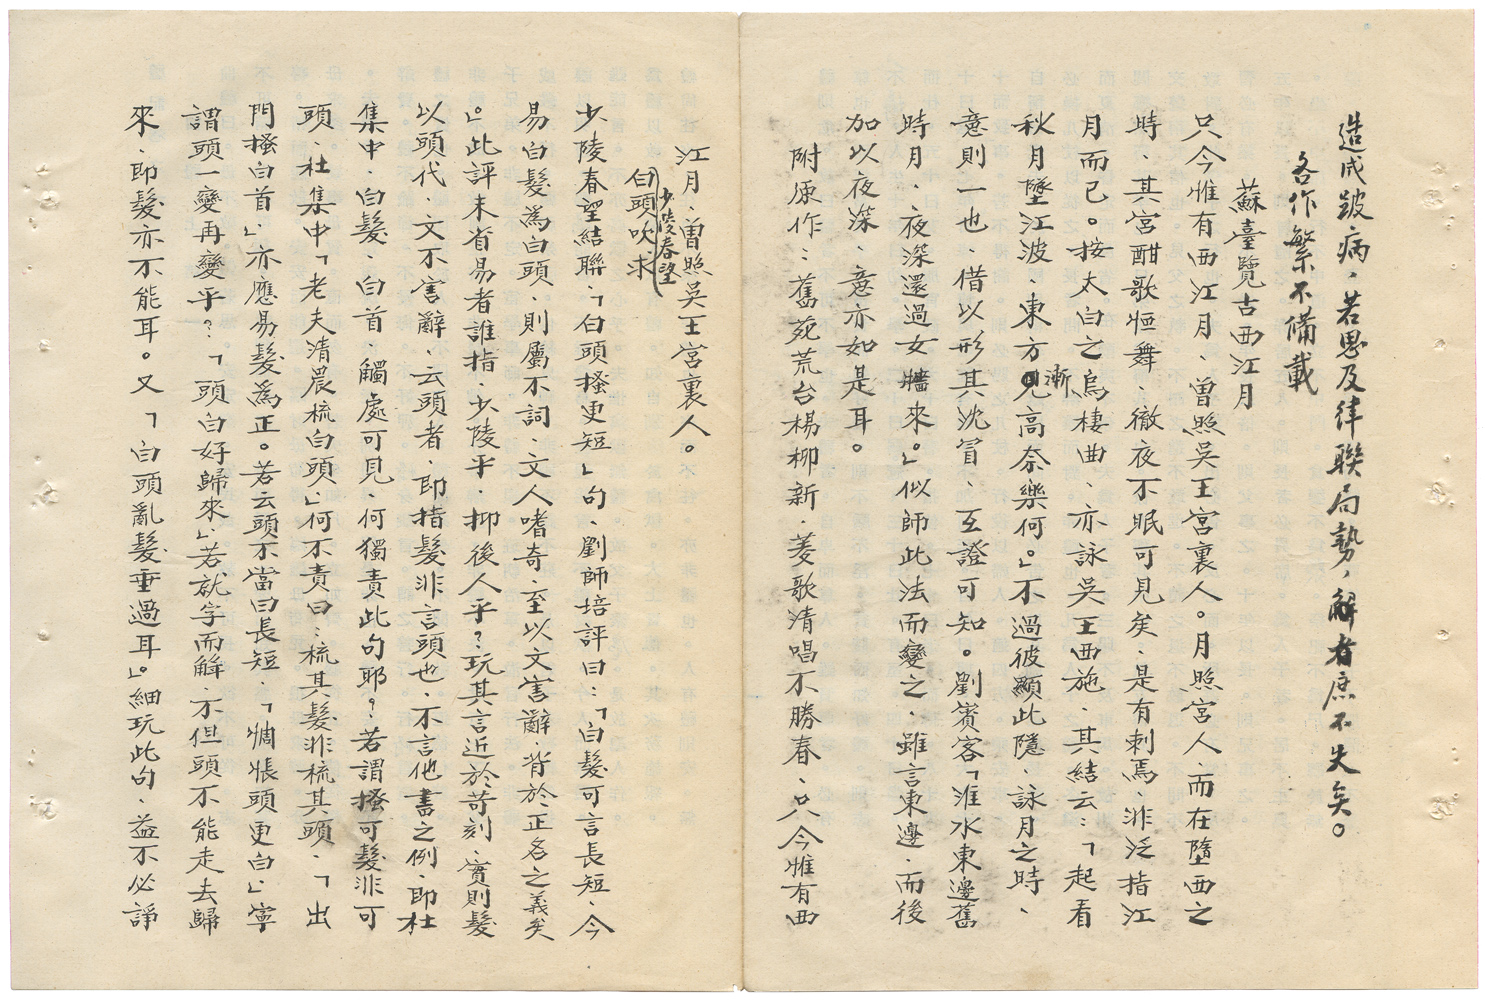 造成跛病，若思及律聯局勢，解者庶不失矣。
各作繁不備載
蘇臺覽古西江月
只今惟有西江月、曾照吳王宮裏人。月照宮人、而在墮西之
時、其宮酣歌恒舞、徹夜不眠可見矣、是有刺焉、非泛指江
月而已。按太白之烏棲曲、亦詠吳王西施、其結云：「起看
秋月墜江波、東方漸高奈樂何。」不過彼顯此隱、詠月之時、
意則一也、借以形其沈冥、互證可知。劉賓客「淮水東邊舊
時月、夜深還過女牆來。」似師此法而變之、雖言東邊、而後
加以夜深、意亦如是耳。
附原作：舊苑荒台楊柳新、菱歌清唱不勝春、只今惟有西
江月、曾照吳王宮裏人。
少陵春望
白頭吹求
少陵春望結聯、「白頭搔更短」句、劉師培評曰：「白髮可言長短、今
易白髮為白頭、則屬不詞、文人嗜奇、至以文害辭、背於正名之義矣
。」此評未省易者誰指、少陵乎？抑後人乎？玩其言近於苛刻、實則髮
以頭代、文不害辭、云頭者、即指髮非言頭也、不言他書之例、即杜
集中、白髮、白首、觸處可見、何獨責此句耶？若謂搔可髮非可
頭、杜集中「老夫清晨梳白頭」何不責曰：梳其髮非梳其頭、「出
門搔白首」、亦應易髮為正。若云頭不當曰長短、「惆悵頭更白」、寧
謂頭一變再變乎？「頭白好歸來」若就字而解、不但頭不能走去歸
來、即髮亦不能耳。又「白頭亂髮垂過耳」。細玩此句、益不必諍